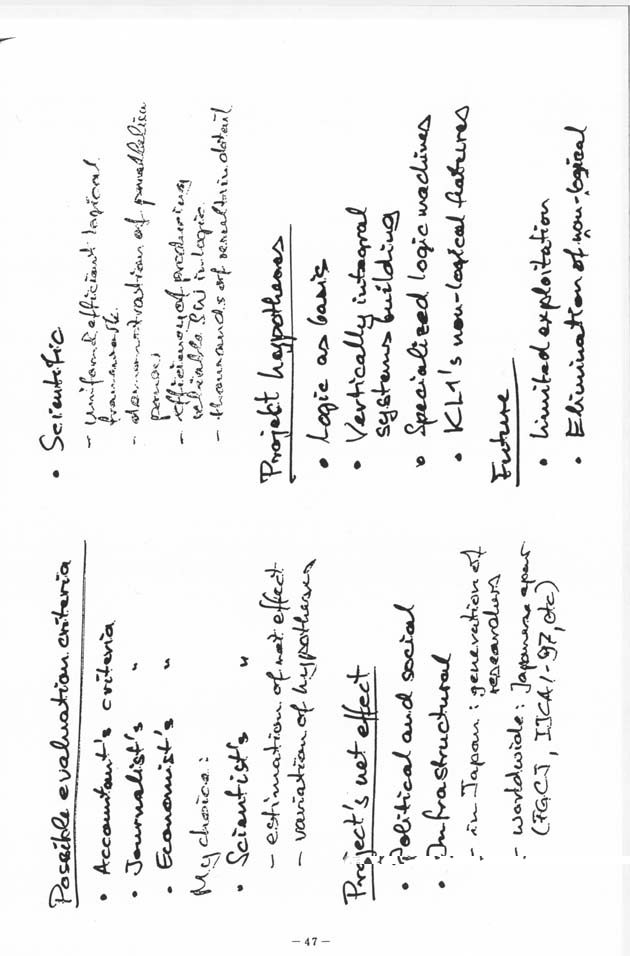 Possible evaluation criteria
• Accountant's criteria
• Journalist's "
• Economist's "
My choice:
• Scientist's "
– estimation of net effect
– variation of hypotheses
Project's net effect
• Political and social
• Infrastructural
– in Japan: generation of
researchers
– worldwide: Japanese
(FGCJ, IJCAI-97, etc)
• Scientific
– uniform & efficient logical
framework
– demonstration of parallelism
power
– efficiency of producing
reliable SW in logic
– thousands of results in detail
Projekt hypotheses
• Logic as basis
• Vertically integral
systems building
• Specialized logic machines
• KL1's non-logical features
Future
• Limited exploitation
• Elimination of non-logical
— 47 —